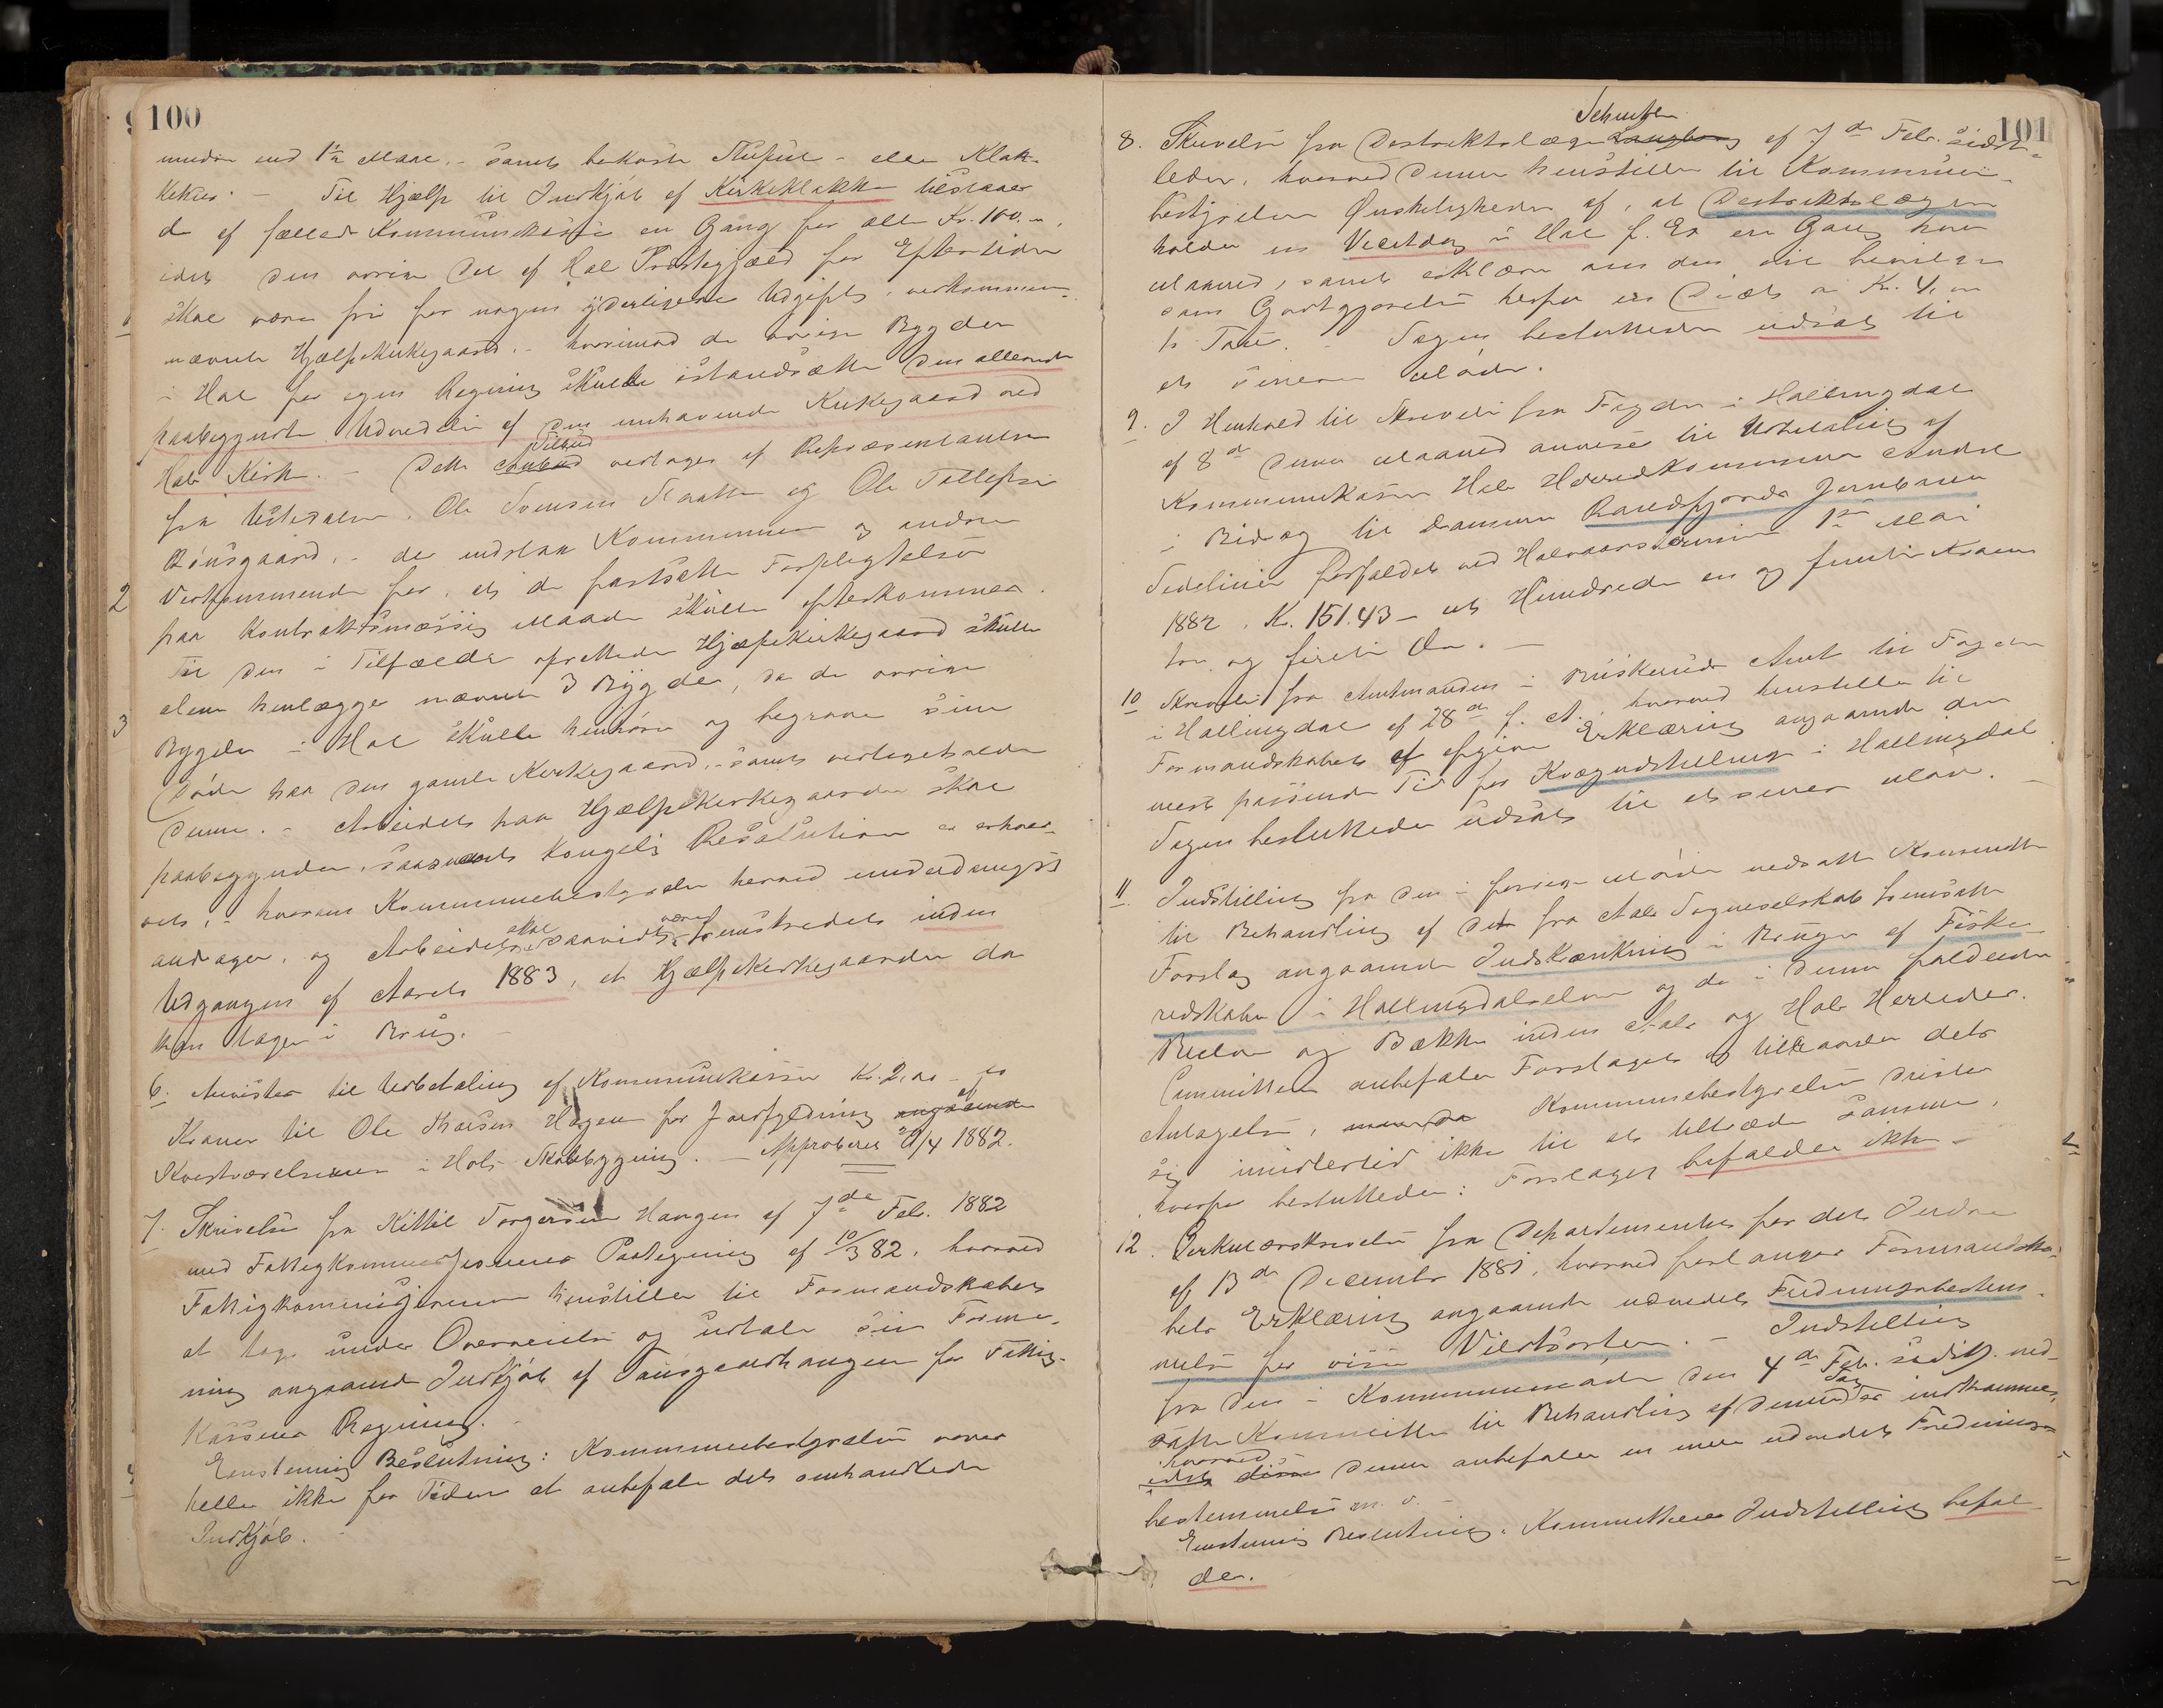 100
mindre end 1½ Alen, - samt bekoste Stupul - eller Klok-
kehus. - Til Hjælp til Indkjøb af Kirkeklokke tilstaaes
de af fælles Kommunekasse en Gang for alle Kr. 100.00,
idet den øvrige Del af Hol Præstegjæld for Eftertiden
skal være fri for nogen yderligere Udgifts, vedkommen-
nævnte Hjælpekirkegaard, - hvorimod de øvrige Bygder
i Hol for egen Regning skulle istandsætte den allerede
paabegyndte Udvidelse af den omhavende Kirkegaard ved
Hols Kirke. - Dette Tilbud vedtages af Repræsentanterne
fra Ustedalen, Ole Svensen Raaen og Ole Tollefsen
Bønsgaard, - de indstaa Kommunen og andre
Vedkommende for, at de fastsatte Forpligtelser
paa kontraktsmæssig Maade skulle efterkommes.
Til den i Tilfælde oprettede Hjælpekirkegaard skulle
alene henlægges nævnte 3 Bygder, da de øvrige
Bygder i Hol skulle henhøre og begrave sine
Døde paa den gamle Kirkegaard, - samt vedligeholde
denne. - Arbeidet paa Hjælpekirkegaarden skal
paabegyndes, saasnart Kongelig Resolution er erhver-
vet, - hvorom Kommunebestyrelsen herved underdanigst
andrager, og Arbeidet skal saavidt være fremskredet inden
Udgangen af Aaret 1883, at Hjælpekirkegaarden da
kan tages i Brug.
6. Anvistes til Udbetaling af Kommunekassen Kr. 2,00 - to
Kroner til Ole Larsen Hagen for Jordfyldning af
Kvistværelserne i Hols Skolebygning. - Approberes 20/4 1882.
7. Skrivelse fra Kittil Torgersen Haugen af 7de Feb. 1882
med Fattigkommissionens Paategning af 10/3 82, hvorved
Fattigkommissionen henstiller til Formandskabet
at tage under Overveielse og udtale sin Forme-
ning angaaende Indkjøb af Tausgaardhaugen for Fattig-
kassens Regning.
Enstemmig Beslutning: Kommunebestyrelsen vover
heller ikke for Tiden at anbefale det omhandlede
Indkjøb.
101
8. Skrivelse fra Destriktslæge af 7de Febr. sidst-
leden, hvorved denne henstiller til Kommune-
bestyrelsen Ønskeligheden af, at Destriktslægen
holder en Visitdag i Hol f. Ex en Gang hver
Maaned, samt erklære om den vil bevilge
som Godtgjørelse herfor en Diæt a Kr. 4,00
b Taxt. - Sagen besluttedes udsat til
et senere Møde.
9. I Henhold til Skrivelse fra Fogden i Hallingdal
af 8de denne Maaned anvises til Udbetaling af
Kommunekassen Hols Herredkommunes Andel
i Bidrag til Drammen Randsfjords Jernbanes
Sidelinier forfaldet ved Halvaarsterminen 1ste Mai
1882, Kr. 151.43 - et Hundrede en og femti Kroner
tre og firti Øre. -
10 Skrivelse fra Amtmanden i Buskeruds Amt til Fogden
i Hallingdal af 28de f. M., hvorved henstilles til
Formandskabet at afgive Erklæring angaaende den
mest passende Tid for Kvægudstilling i Hallingdal.
Sagen besluttedes udsat til et senere Møde. -
11. Indstilling fra den i forrige Møde nedsatte Kommitte
til Behandling af det fra Aals Sogneselskab fremsatte
Forslag angaaende Indskrænkning i Brugen af Fiske-
redskaber i Hallingdalselven og de i denne faldende
Bielve og Bække inden Aals og Hols Herreder.
Committeen anbefaler Forslaget til dets
Antagelse, Kommunebestyrelsen drister
sig imidlertid ikke til at tiltræde samme,
hvorfor besluttedes: Forslaget befaldes ikke -
12. Cirkulærskrivelse fra Departementet for det Indre
af 13de December 1881, hvorved forlanges Formandska-
bets Erklæring angaaende udvidet Fredningsbestem-
melse for visse Vildtsorter. - Indstilling
fra den i Kommunemøde den 4de Feb. sidstl. ned-
satte Kommitte til Behandling af denne Sag er indkommet,
hvorved denne anbefaler en mere udvidet Frednings-
bestemmelse m. v. -
Enstemmig Beslutning: Kommitteens Indstilling befal-
des.